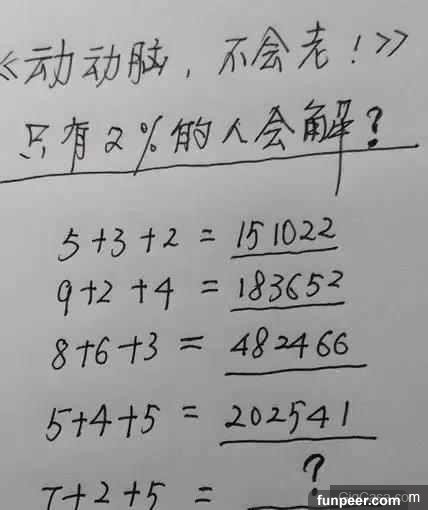 《动动脑，不会老！》
只有2%的人会解？
5+3+2 = 151022
9+2+4 = 183652
8+6+3 = 482466
5+4+5 = 202541
7+2+5 = ?
funpeer.com